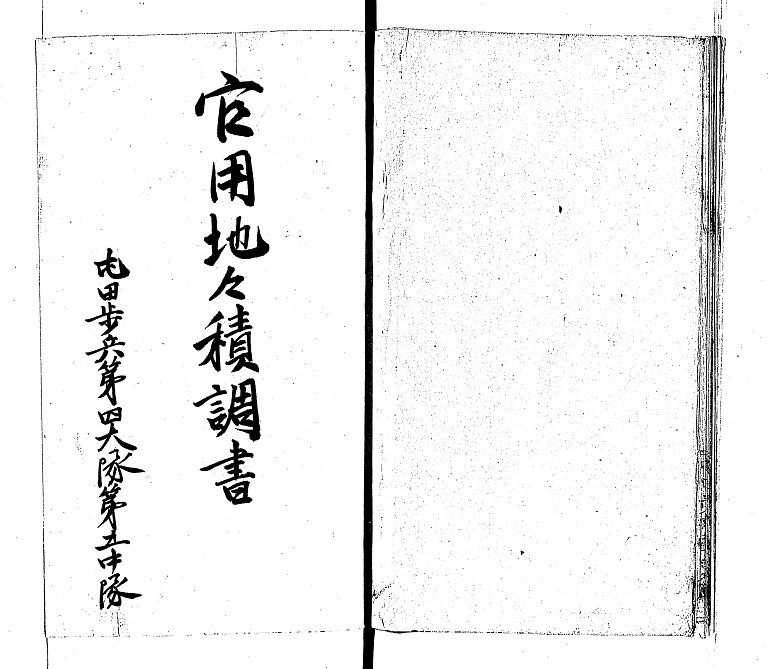 官用地々積調書
屯田歩兵第四大隊第五中隊